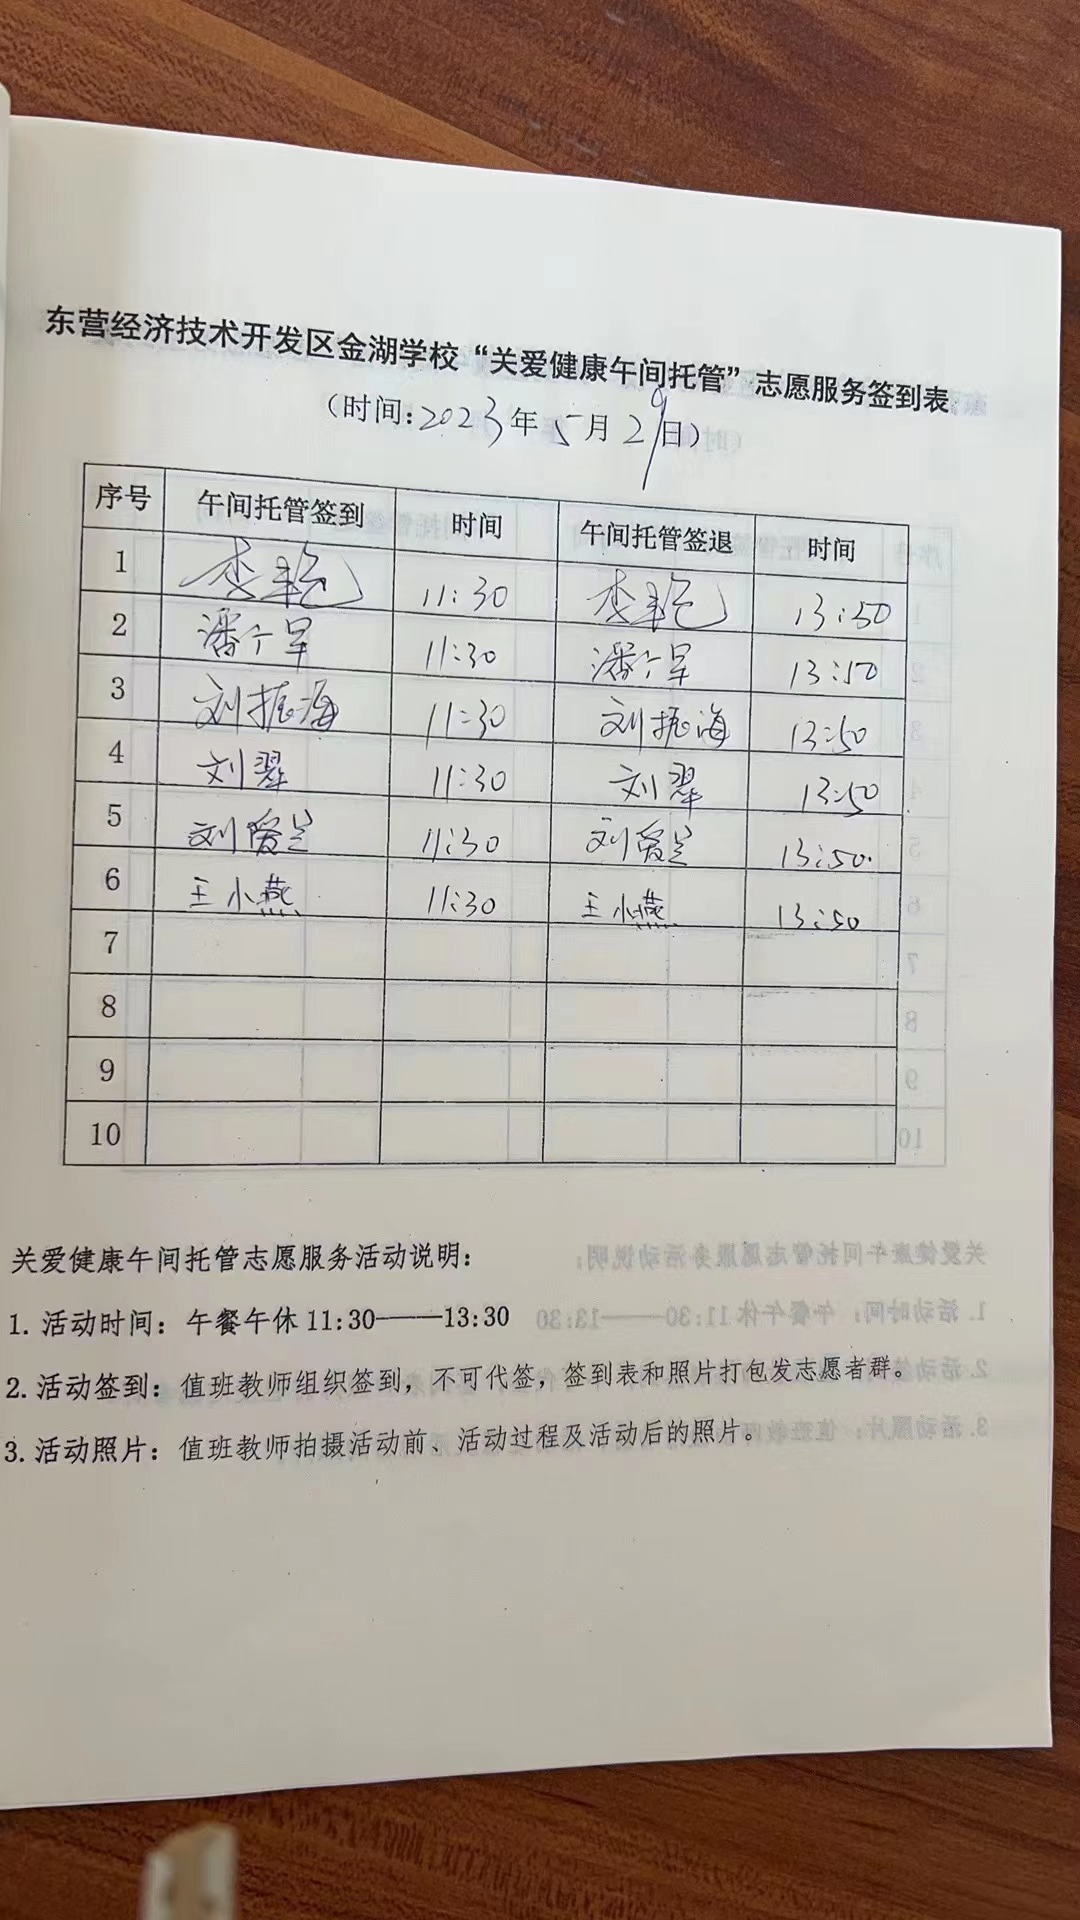 东营经济技术开发区金湖学校“关爱健康午间托管”志愿服务签到表
（时间：2023年5月29日）
序号 午间托管签到 时间 午间托管签退 时间
1 李艳 11:30 李艳 13:50
2 潘广军 11:30 潘广军 13:50
3 刘振海 11:30 刘振海 13:50
4 刘翠 11:30 刘翠 13:50
5 刘爱兰 11:30 刘爱兰 13:50.
6 王小燕 11:30 王小燕 13:50
7
8
9
10
关爱健康午间托管志愿服务活动说明：
1. 活动时间：午餐午休 11:30——13:30
2. 活动签到：值班教师组织签到，不可代签，签到表和照片打包发志愿者群。
3. 活动照片：值班教师拍摄活动前、活动过程及活动后的照片。